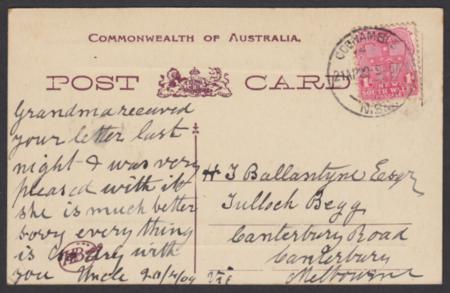 COMMONWEALTH OF AUSTRALIA.
POST CARD
NEW
SOUTH WALES
Grandma received
your letter last
night & was very
pleased with it
she is much better
sorry everything
is so dry with
you Uncle 20/4/09
H J Ballantyne Esqr
Tulloch Begg
Canterbury Road
Canterbury
Melbourne
Vic